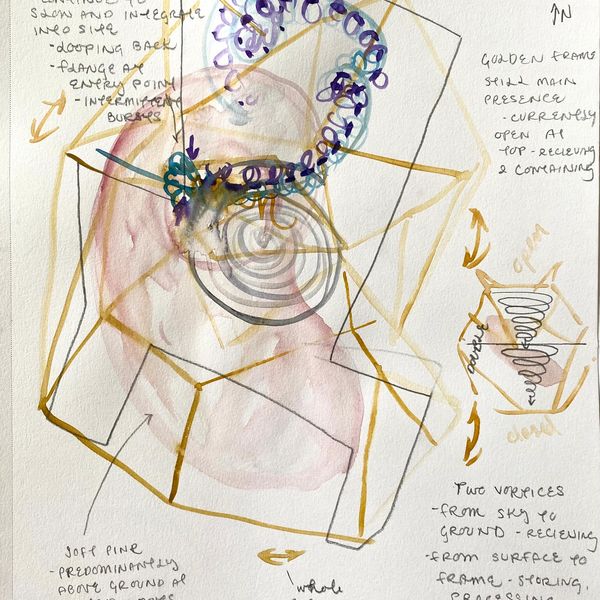 CONTINUE TO
SLOW AND INTEGRATE
INTO SITE
- LOOPING BACK
- FLANGE AT
ENTRY POINT
- INTERMITTENT
BURSTS
N
GOLDEN FRAME
STILL MAIN
PRESENCE
- CURRENTLY
OPEN AT
TOP - RECIEVING
& CONTAINING
open
closed
TWO VORTICES
- FROM SKY TO
GROUND - RECIEVING
- FROM SURFACE TO
FRAME - STORING,
PROCESSING
SOFT PINK
- PREDOMINANTLY
ABOVE GROUND AT
whole